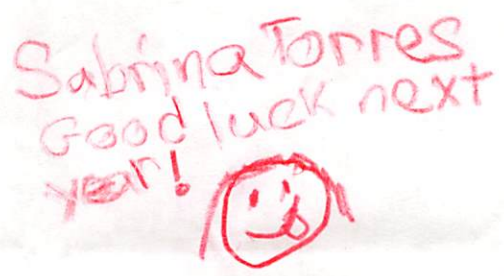 Sabrina Torres
Good luck next
year!